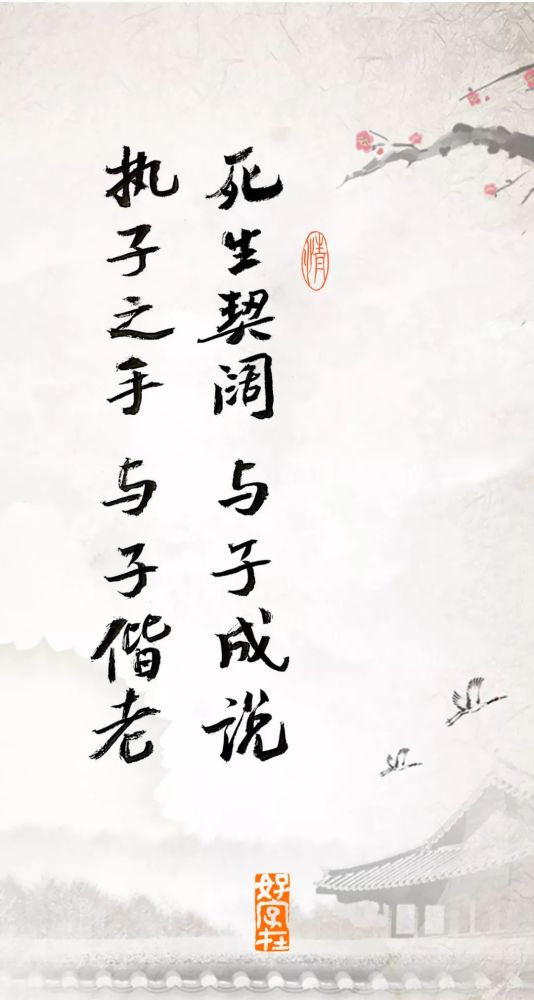 死生契阔 与子成说
执子之手 与子偕老
情
好字在